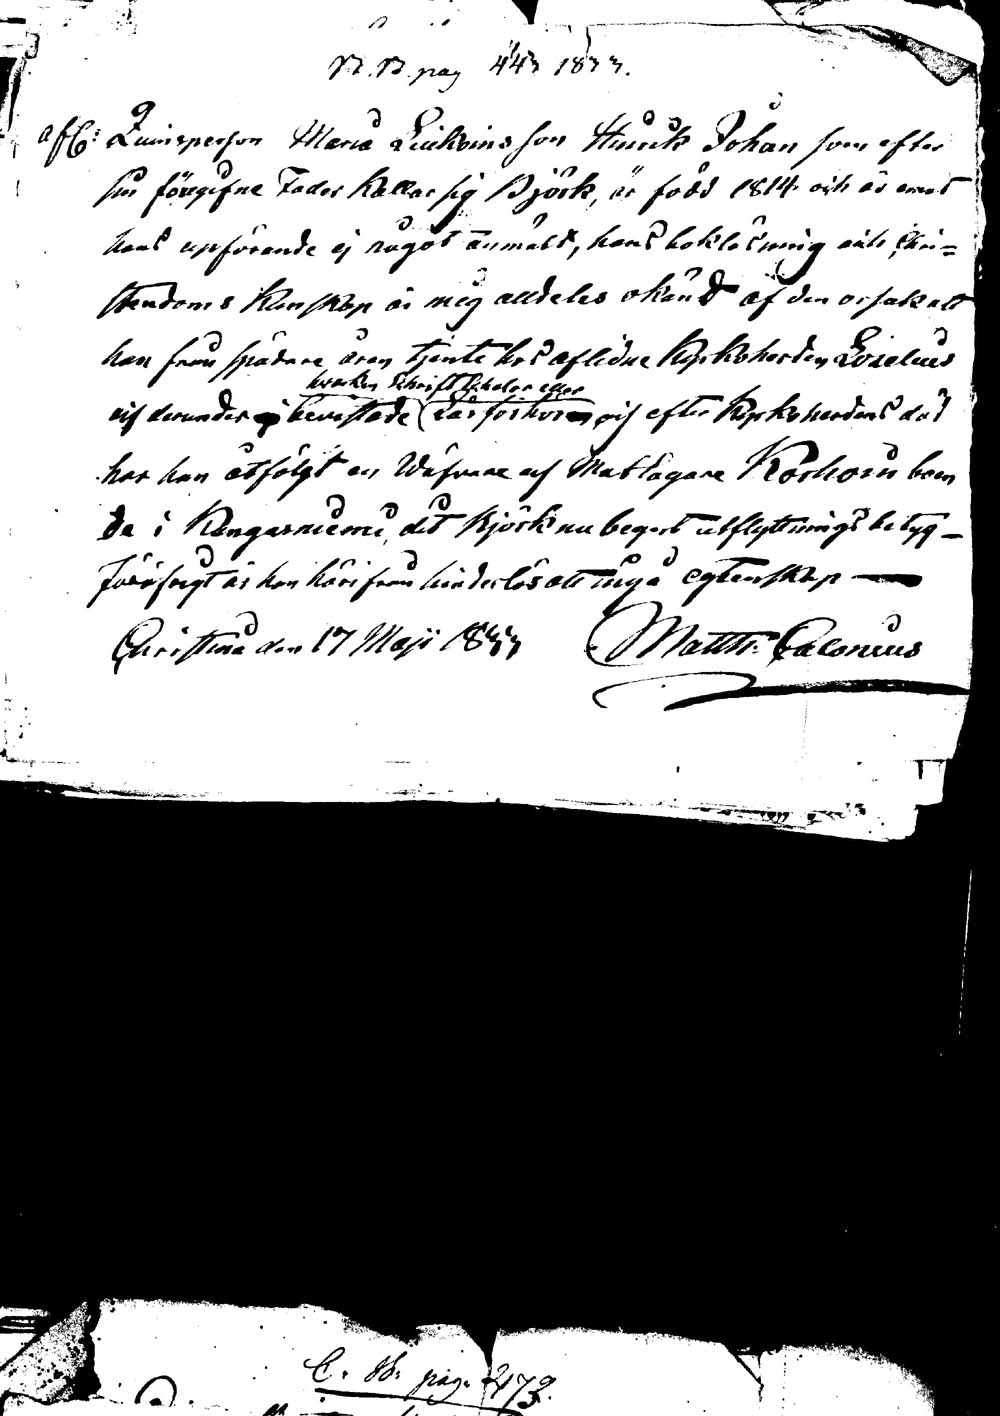 N.B. pag 443 1833.
afl: Qvinsperson Maria Luikoins son Hinrik Johan som efter
sin föregifne Fader kallar sig Björk, är född 1814 och är emot
hans upförande ej något anmält, hans bokläsning och Chri=
stendoms kunskap är mig alldeles okänd af den orsak att
han från spädare åren tjente hos aflidne Kyrkoherden
hvarken Skrift Scholor eller
och derunder ej bevistade Läsförhören, och efter Kyrkoherdens död
har han åtfölgt en Wäfvare af Matlagare boen
de i Kangasniemi, dit Björk nu begärt utflyttnings betyg –
Föröfrigt är han härifrån hinderlös att ingå egtenskap —
Christina den 17 Maji 1833 Matth: Calonius
C. B. pag. 273.